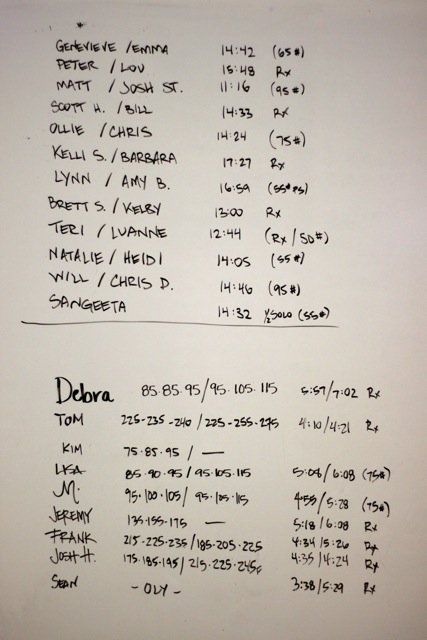 GENEVIEVE / EMMA 14:42 (65#)
PETER / LOU 15:48 Rx
MATT / JOSH ST. 11:16 (95#)
SCOTT H. / BILL 14:33 Rx
OLLIE / CHRIS 14:24 (75#)
KELLI S. / BARBARA 17:27 Rx
LYNN / AMY B. 16:59
BRETT S. / KELBY 13:00 Rx
TERI / LUANNE 12:44 (Rx / 50#)
NATALIE / HEIDI 14:05 (55#)
WILL / CHRIS D. 14:46 (95#)
SANGEETA 14:32 ½ SOLO (55#)
Debra 85·85·95/95·105·115 5:57/7:02 Rx
TOM 225-235-240/225-255-275 4:10/4:21 Rx
KIM 75·85·95 / —
LISA 85·90·95/95·105·115 5:08/6:08 (75#)
M. 95·100·105/95·105·115 4:55/5:28 (75#)
JEREMY 135·155·175 — 5:18/6:08 Rx
FRANK 215-225-235/185·205·225 4:34/5:26 Rx
JOSH H. 175·185·195/215·225·245 4:35/4:24 Rx
SEAN - OLY - 3:38/5:29 Rx